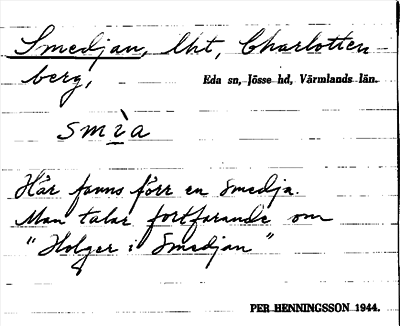 Smedjan, lht, Charlotten
berg,
Eda sn, Jösse hd, Värmlands län.
smìa
Här fanns förr en smedja.
Man talar fortfarande om
"Holger i Smedjan"
PER HENNINGSSON 1944.